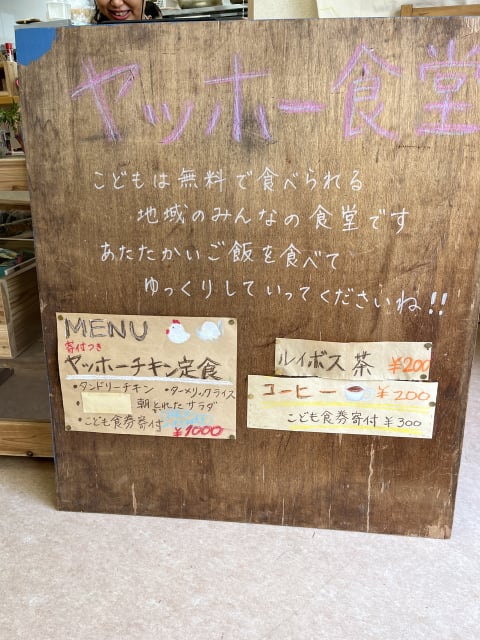 ヤッホー食堂
こどもは無料で食べられる
地域のみんなの食堂です
あたたかいご飯を食べて
ゆっくりしていってくださいね!!
MENU
寄付つき
ヤッホーチキン定食
・タンドリーチキン ・ターメリックライス
・ 朝とれたサラダ
・こども食券寄付
¥1000
ルイボス茶 ¥200
コーヒー ¥200
こども食券寄付 ¥300